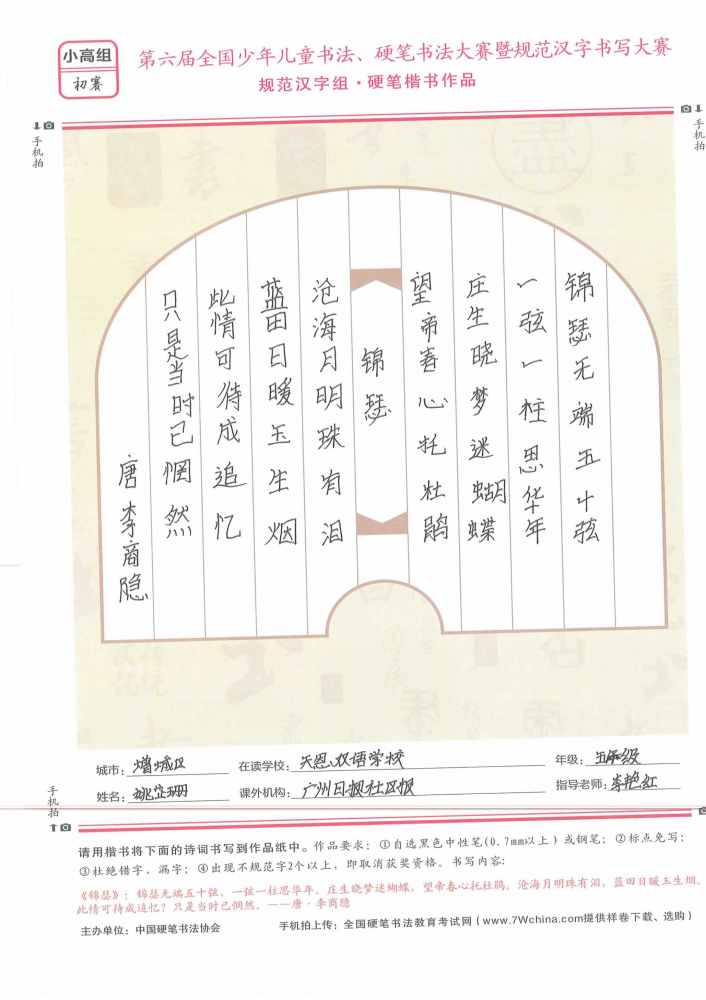 小高组
初赛
第六届全国少年儿童书法、硬笔书法大赛暨规范汉字书写大赛
规范汉字组·硬笔楷书作品
手机拍
手机拍
锦瑟无端五十弦
一弦一柱思华年
庄生晓梦迷蝴蝶
望帝春心托杜鹃
锦瑟
沧海月明珠有泪
蓝田日暖玉生烟
此情可待成追忆
只是当时已惘然
唐李商隐
城市：增城区 在读学校：天恩双语学校 年级：五年级
姓名：姚岱珊 课外机构：广州日报社区报 指导老师：李艳红
手机拍
请用楷书将下面的诗词书写到作品纸中。作品要求：①自选黑色中性笔(0.7mm以上)或钢笔；②标点免写；
③杜绝错字、漏字；④出现不规范字2个以上，即取消获奖资格。书写内容：
《锦瑟》：锦瑟无端五十弦，一弦一柱思华年。庄生晓梦迷蝴蝶，望帝春心托杜鹃。沧海月明珠有泪，蓝田日暖玉生烟。
此情可待成追忆？只是当时已惘然。——唐·李商隐
主办单位：中国硬笔书法协会 手机拍上传：全国硬笔书法教育考试网（www.7Wchina.com提供样卷下载、选购）